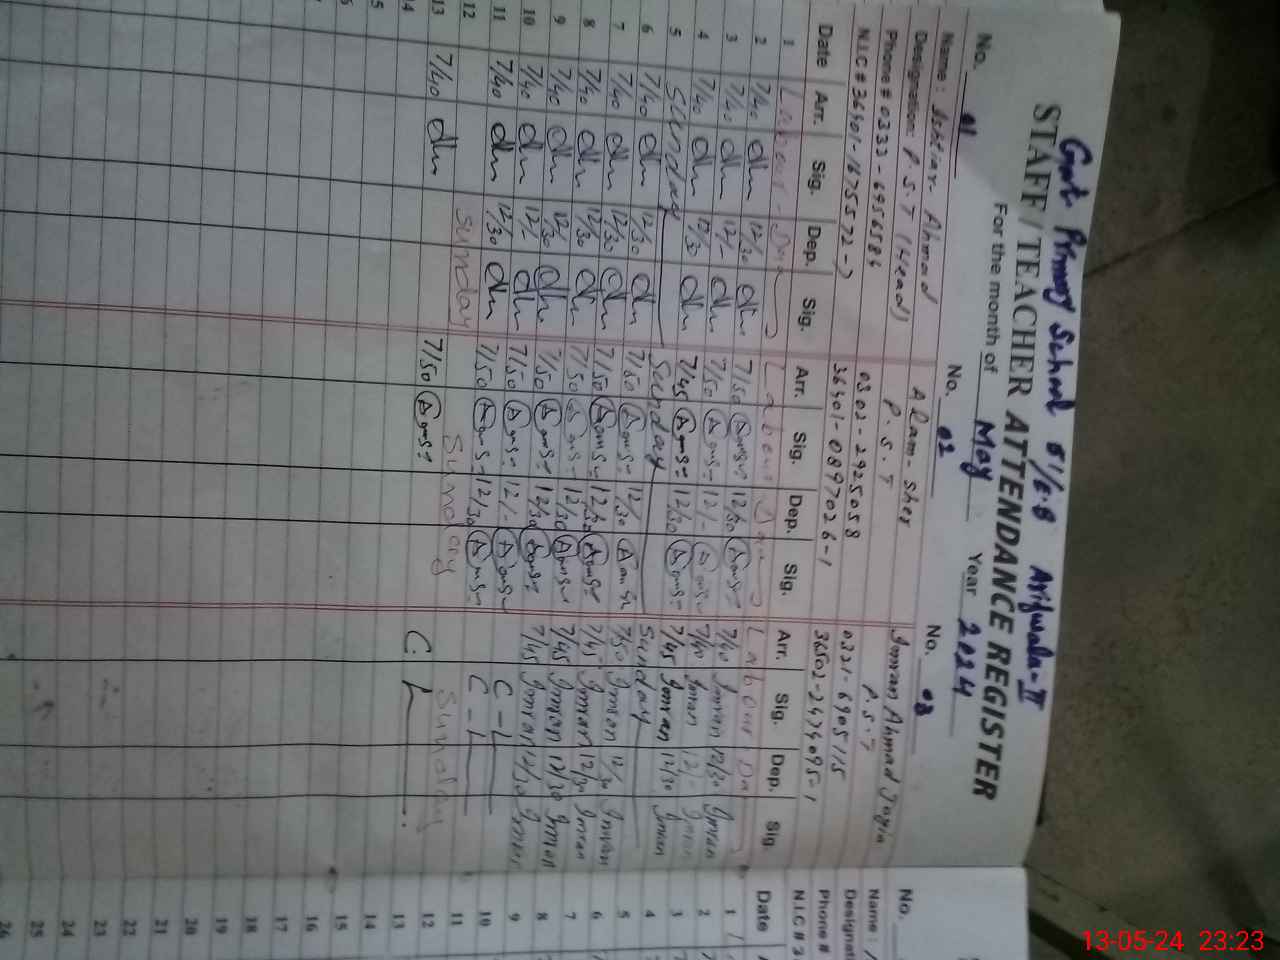 Govt Primary School 51/E.B Arifwala-II
STAFF/TEACHER ATTENDANCE REGISTER
For the month of May Year 2024
No. 01 No. 02 No. 03
Name: Ishtiaq Ahmad Alam-sher Imran Ahmad
Designation: P.S.T (Head) P.S.T P.S.T
Phone # 0333-6956584 0302-2925058 0321-6905115
N.I.C # 36401-1675572-7 36401-0897026-1 36502-2474095-1
Date Arr. Sig. Dep. Sig. Arr. Sig. Dep. Sig. Arr. Sig. Dep. Sig.
1 Labour Day Labour Day Labour Day
2 7/40 12/30 7/50 12/30 7/40 Imran 12/30 Imran
3 7/40 12/- 7/50 12/- 7/40 Imran 12/- Imran
4 7/40 12/30 7/45 12/30 7/45 Imran 12/30 Imran
5 Sunday Sunday Sunday
6 7/40 12/30 7/50 12/30 7/50 Imran 12/30 Imran
7 7/40 12/30 7/50 12/30 7/45 Imran 12/30 Imran
8 7/40 12/30 7/50 12/30 7/45 Imran 12/30 Imran
9 7/40 12/30 7/50 12/30 7/45 Imran 12/30 Imran
10 7/40 12/- 7/50 12/- C-L
11 7/40 12/30 7/50 12/30 C-L
12 Sunday Sunday Sunday
13 7/40 7/50 C.L
14
15
16
No.
Name:
Designati
Phone #
N.I.C # 3
Date
1
2
3
4
5
6
7
8
9
10
11
12
13
14
15
16
17
18
19
20
21
22
23
24
25
26
13-05-24 23:23